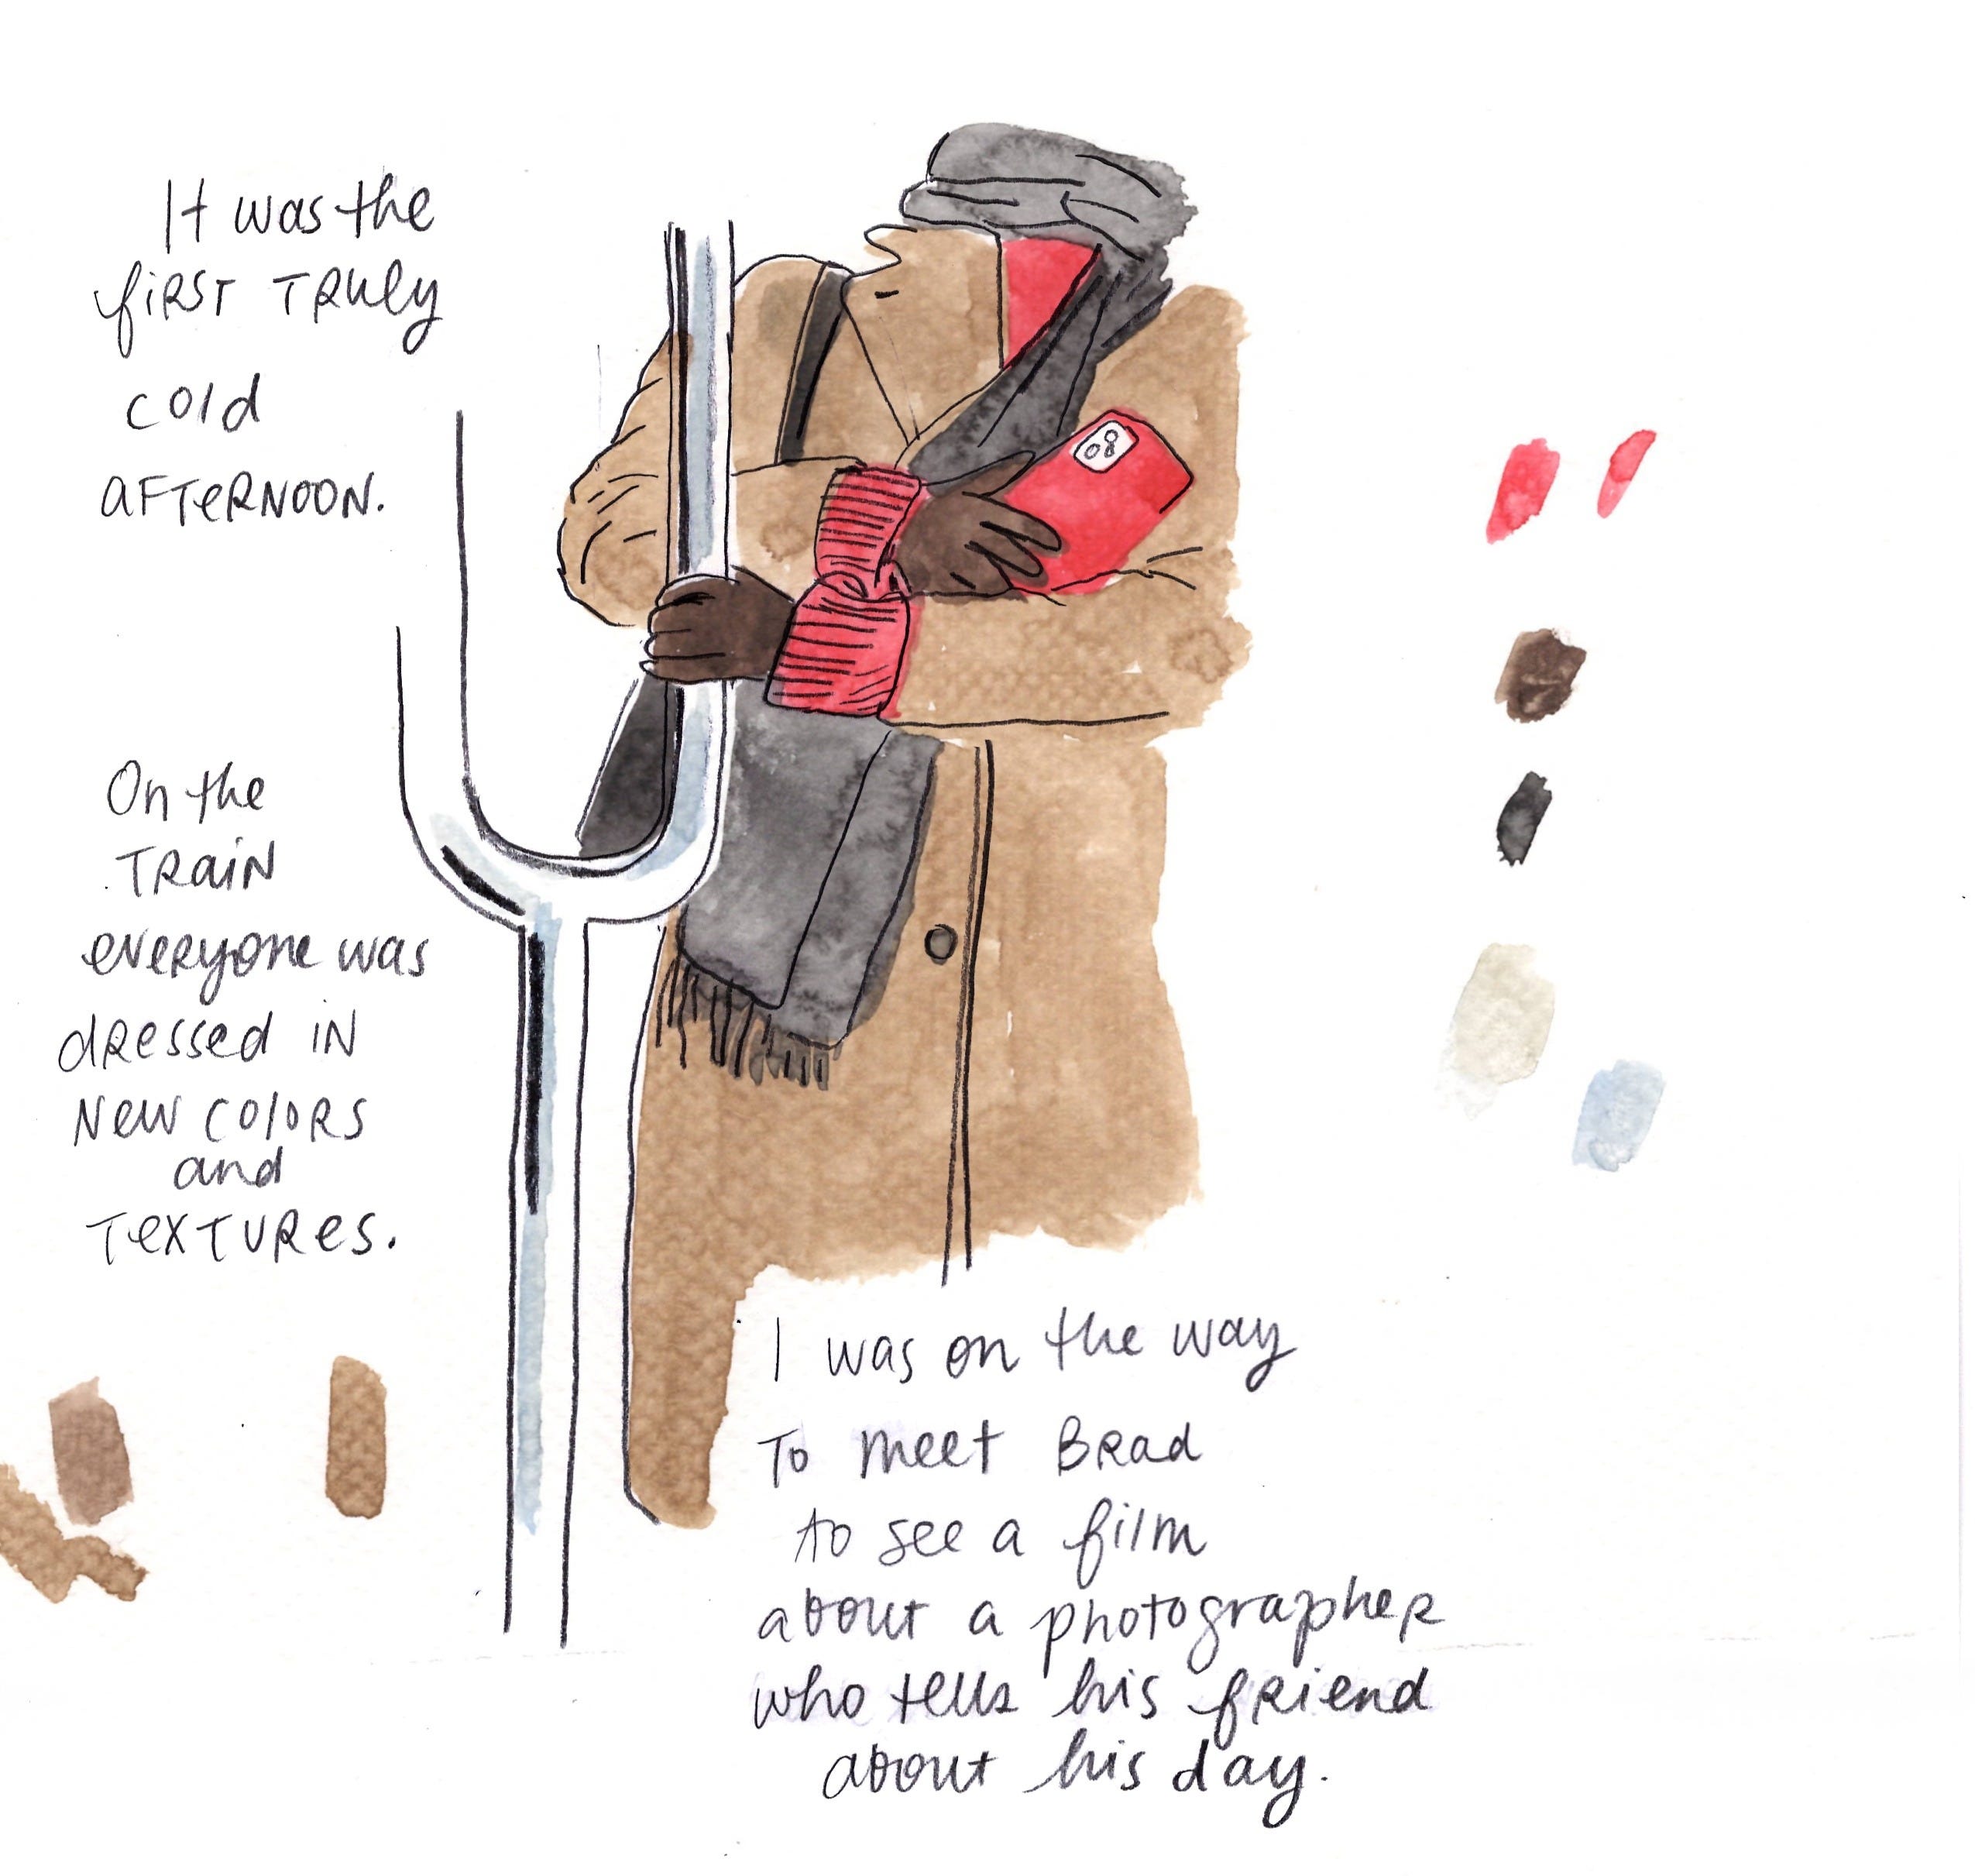 It was the
first truly
cold
afternoon.
On the
train
everyone was
dressed in
new colors
and
textures.
I was on the way
to meet Brad
to see a film
about a photographer
who tells his friend
about his day.